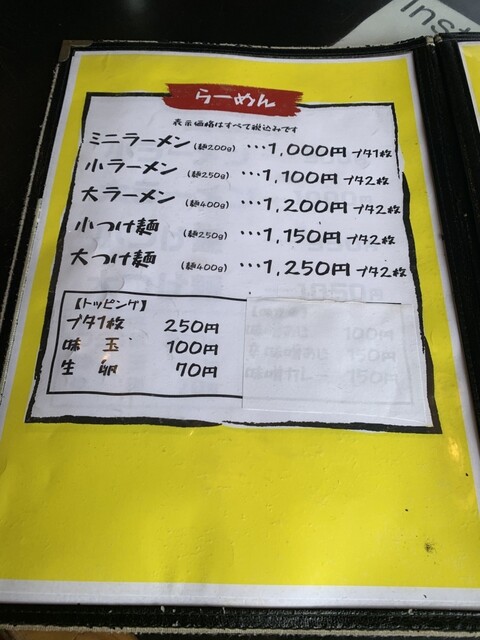 Inst
らーめん
表示価格はすべて税込みです
ミニラーメン (麺200g) …1,000円 ブタ1枚
小ラーメン (麺250g) …1,100円 ブタ2枚
大ラーメン (麺400g) …1,200円 ブタ2枚
小つけ麺 (麺250g) …1,150円 ブタ2枚
大つけ麺 (麺400g) …1,250円 ブタ2枚
【トッピング】
ブタ1枚 250円
味玉 100円
生卵 70円
100円
150円
味噌カレー 150円